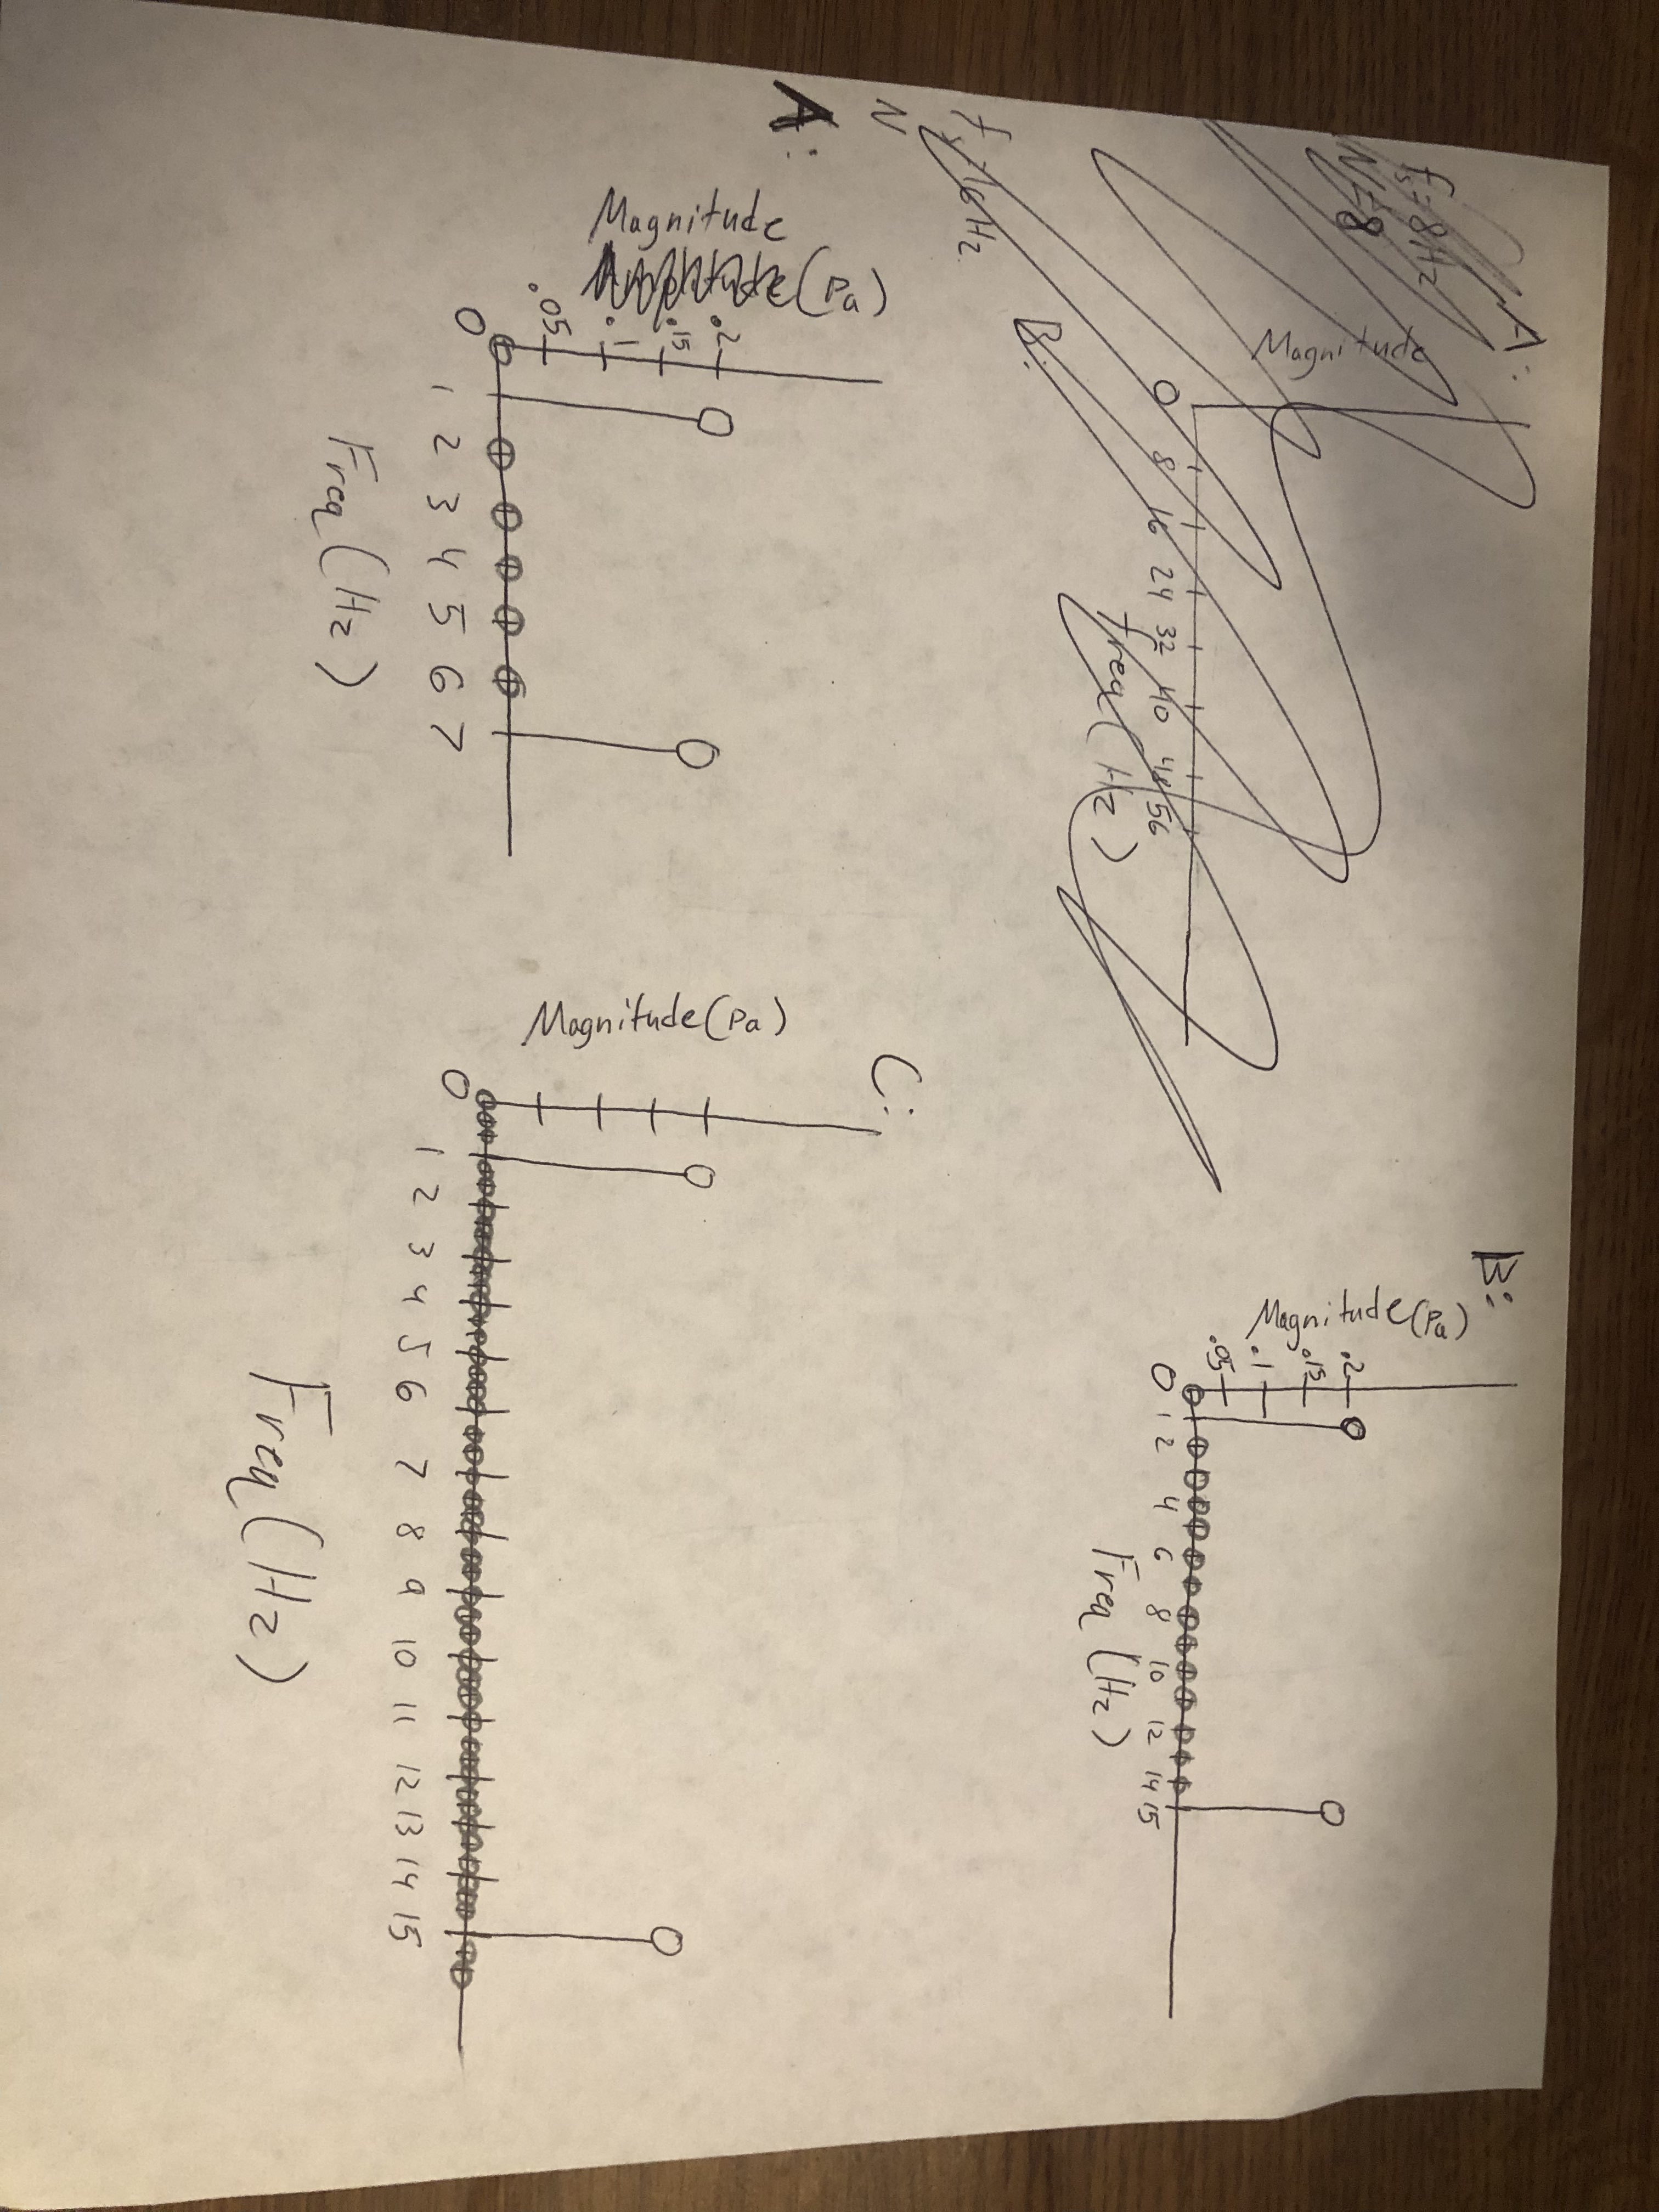 A:
fs=8Hz
N=8
Magnitude
0 8 16 24 32 40 48 56
freq(Hz)
B:
fs=16Hz
N
Magnitude(Pa)
.2
.15
.1
.05
0 1 2 4 6 8 10 12 14 15
Freq (Hz)
A:
Magnitude
(Pa)
.2
.15
.1
.05
0
1 2 3 4 5 6 7
Freq (Hz)
C:
Magnitude(Pa)
0
1 2 3 4 5 6 7 8 9 10 11 12 13 14 15
Freq (Hz)